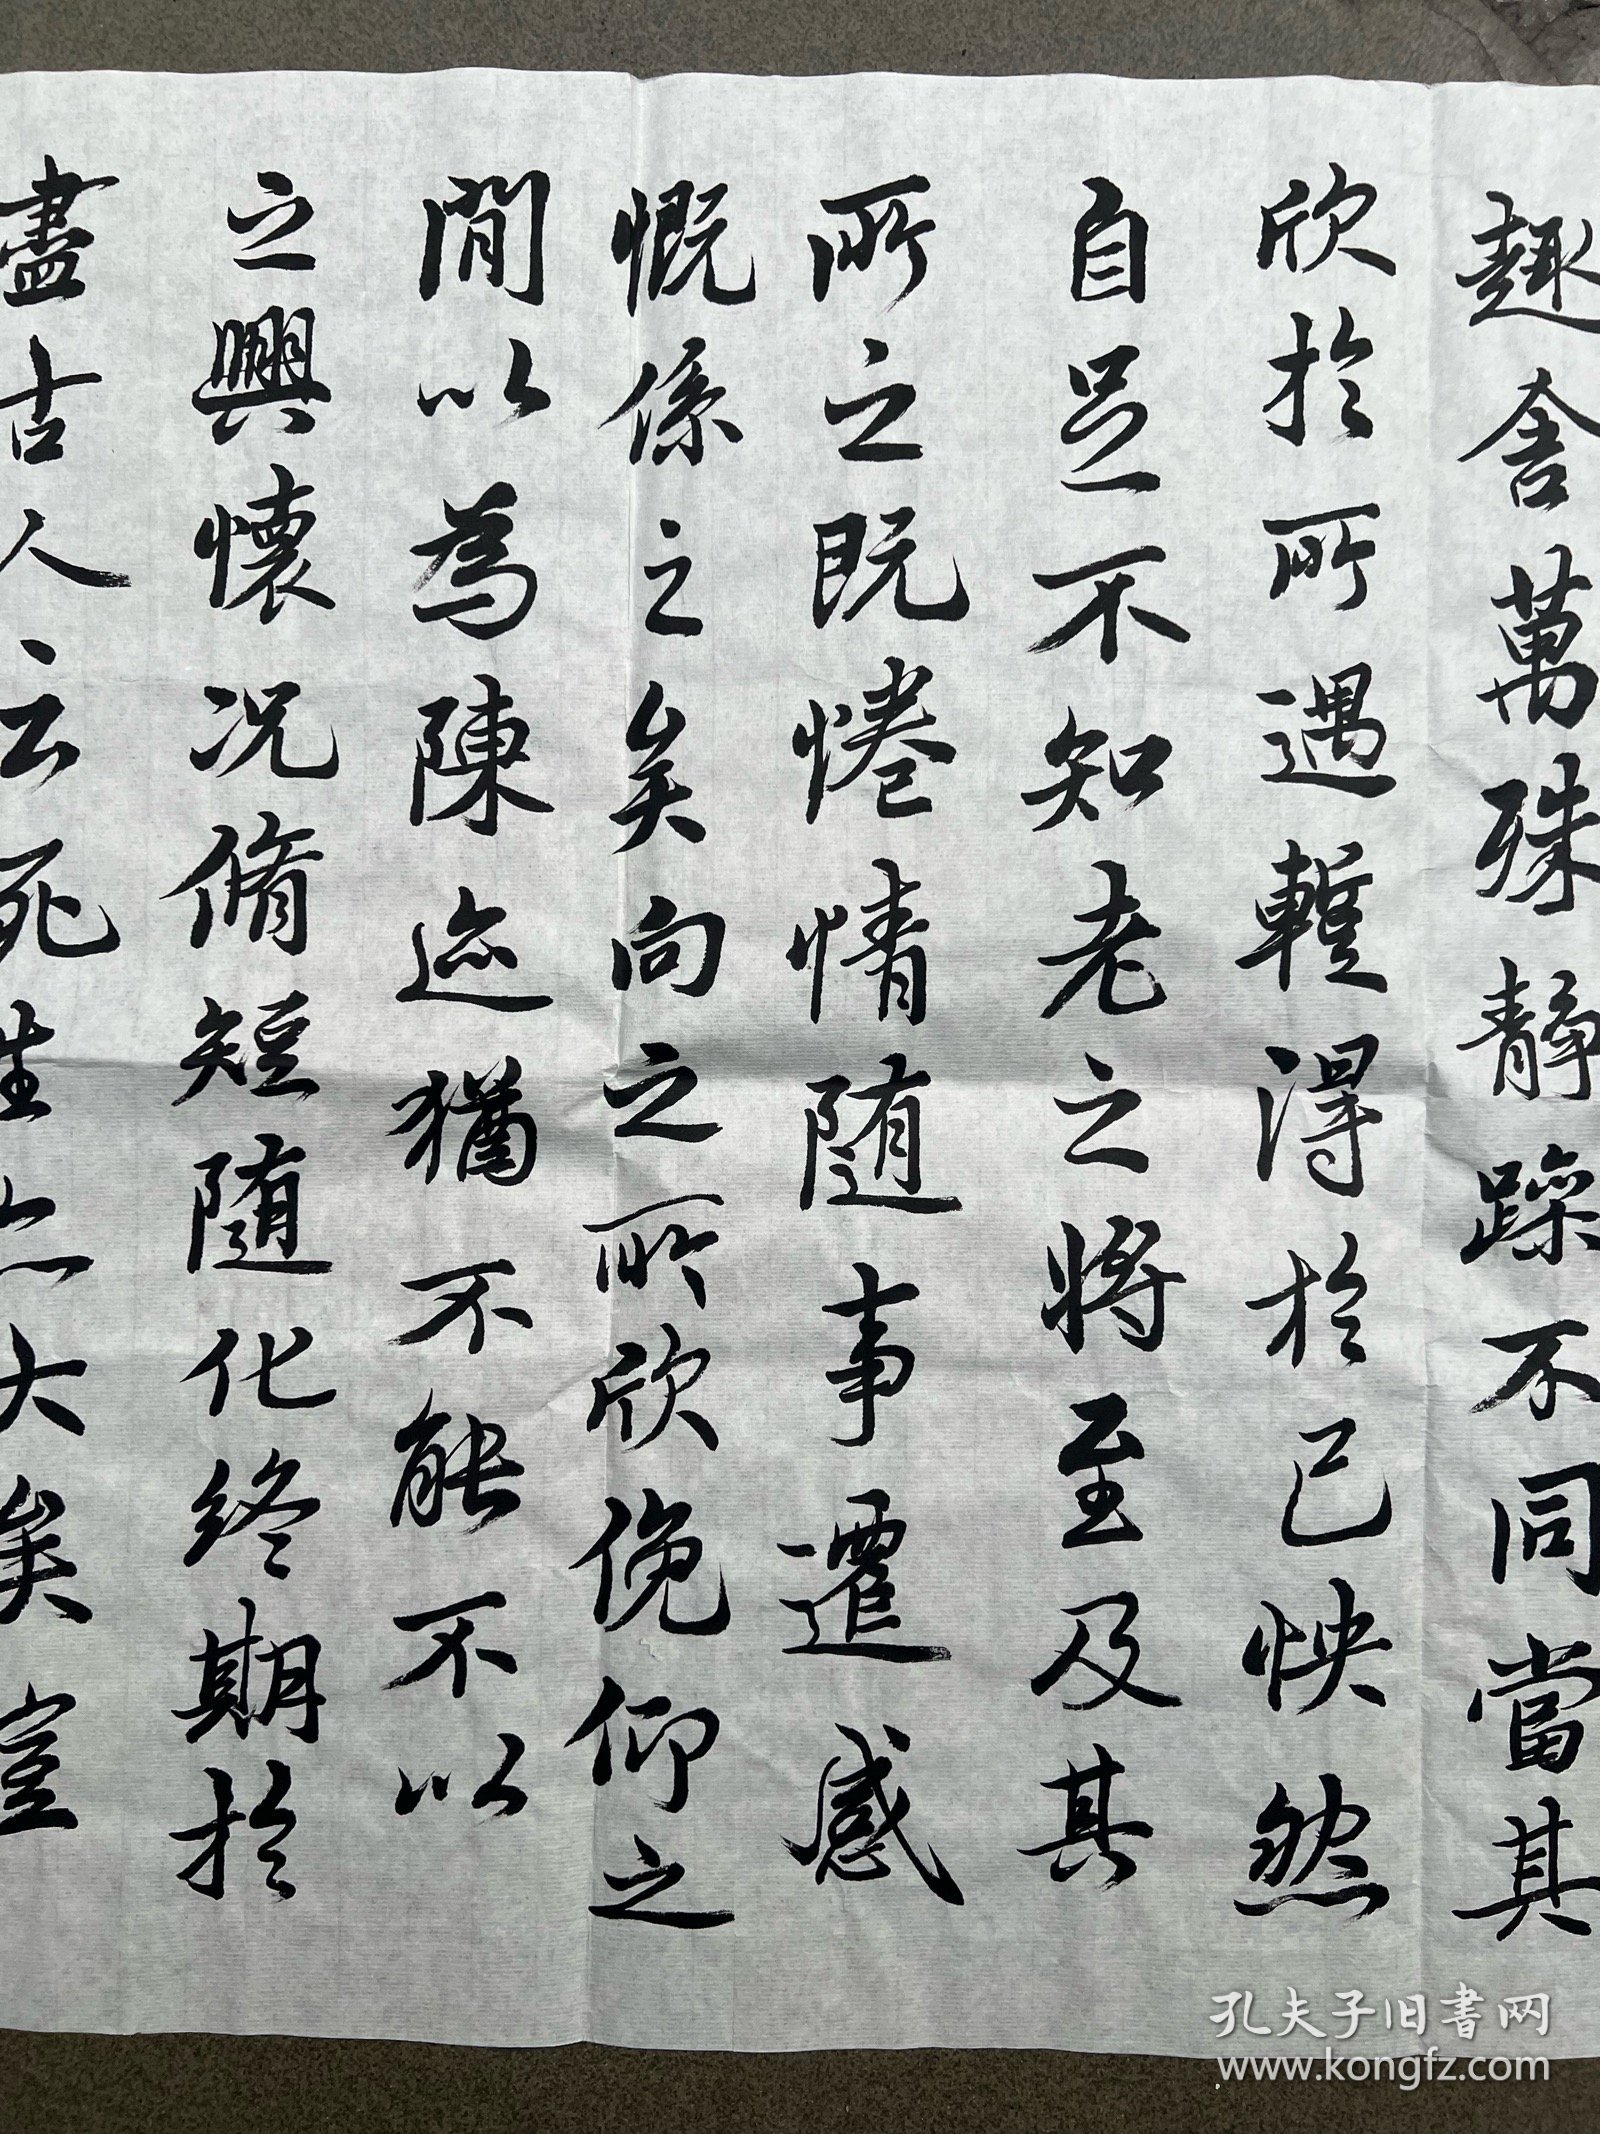 趣舍萬殊靜躁不同當其
欣於所遇暫得於己怏然
自足不知老之將至及其
所之既惓情随事遷感
慨係之矣向之所欣俛仰之
閒以為陳迹猶不能不以
之興懷況脩短随化終期於
盡古人云死生亦大矣豈
孔夫子旧書网
www.kongfz.com